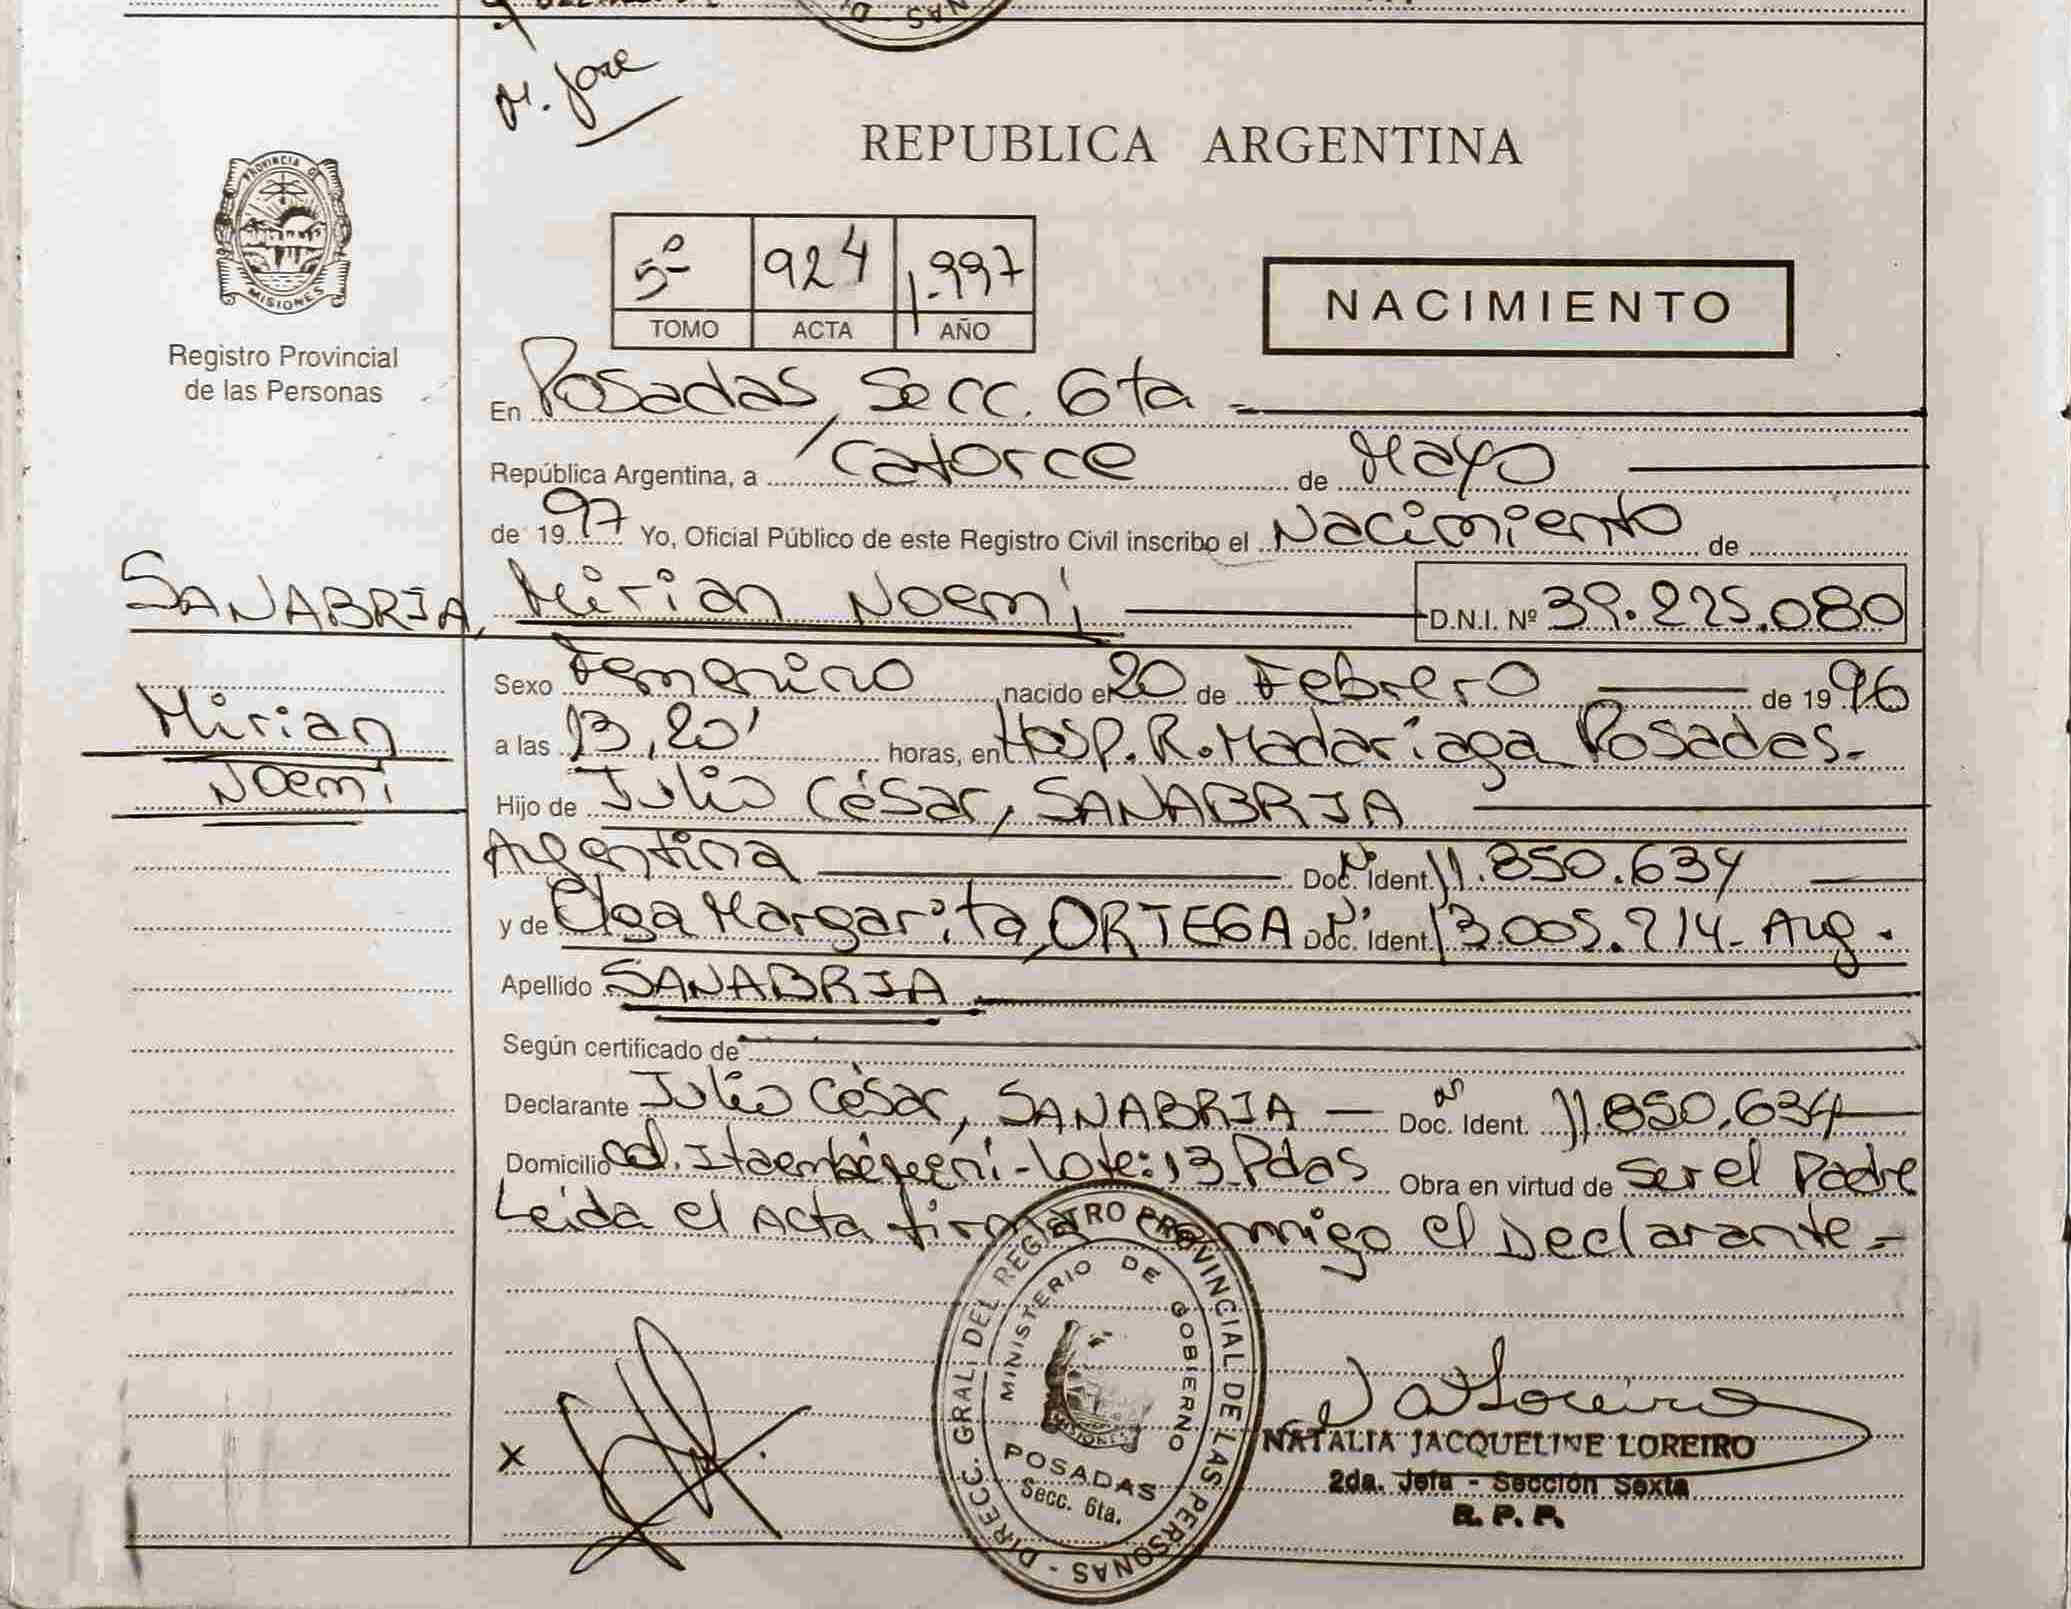 M. José
REPUBLICA ARGENTINA
PROVINCIA DE
MISIONES
Registro Provincial
de las Personas
5º 924 1.997
TOMO ACTA AÑO
NACIMIENTO
En Posadas, Secc. 6ta
República Argentina, a Catorce de Mayo
de 1997 Yo, Oficial Público de este Registro Civil inscribo el Nacimiento de
SANABRIA, Mirian Noemi D.N.I. Nº 39.225.080
Sexo Femenino nacido el 20 de Febrero de 1996
Mirian
a las 13,20' horas, en Hosp. R. Madariaga Posadas.
Noemi
Hijo de Julio César, SANABRIA
Argentina Doc. Ident. 11.850.634
y de Elga Margarita, ORTEGA Doc. Ident. 13.005.214 - Arg.
Apellido SANABRIA
Según certificado de
Declarante Julio César, SANABRIA Doc. Ident. 11.850.634
Domicilio Col. - Lote: 13 Pdas Obra en virtud de ser el Padre
Leida el Acta firma conmigo el Declarante.
DIRECC. GRAL. DEL REGISTRO PROVINCIAL DE LAS PERSONAS
MINISTERIO DE GOBIERNO
MISIONES
POSADAS
Secc. 6ta.
X
NATALIA JACQUELINE LOREIRO
2da. Jefa - Sección Sexta
R.P.P.